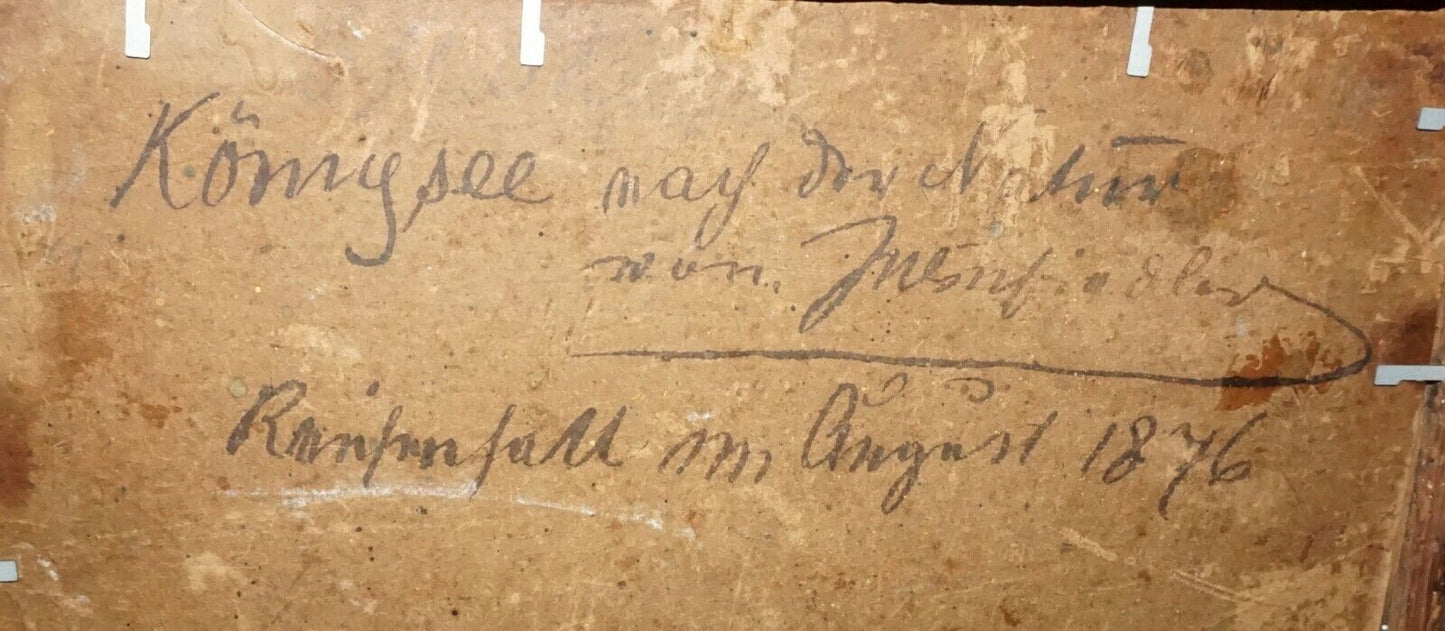 Königsee nach der Natur
von
Reichenhall im August 1876